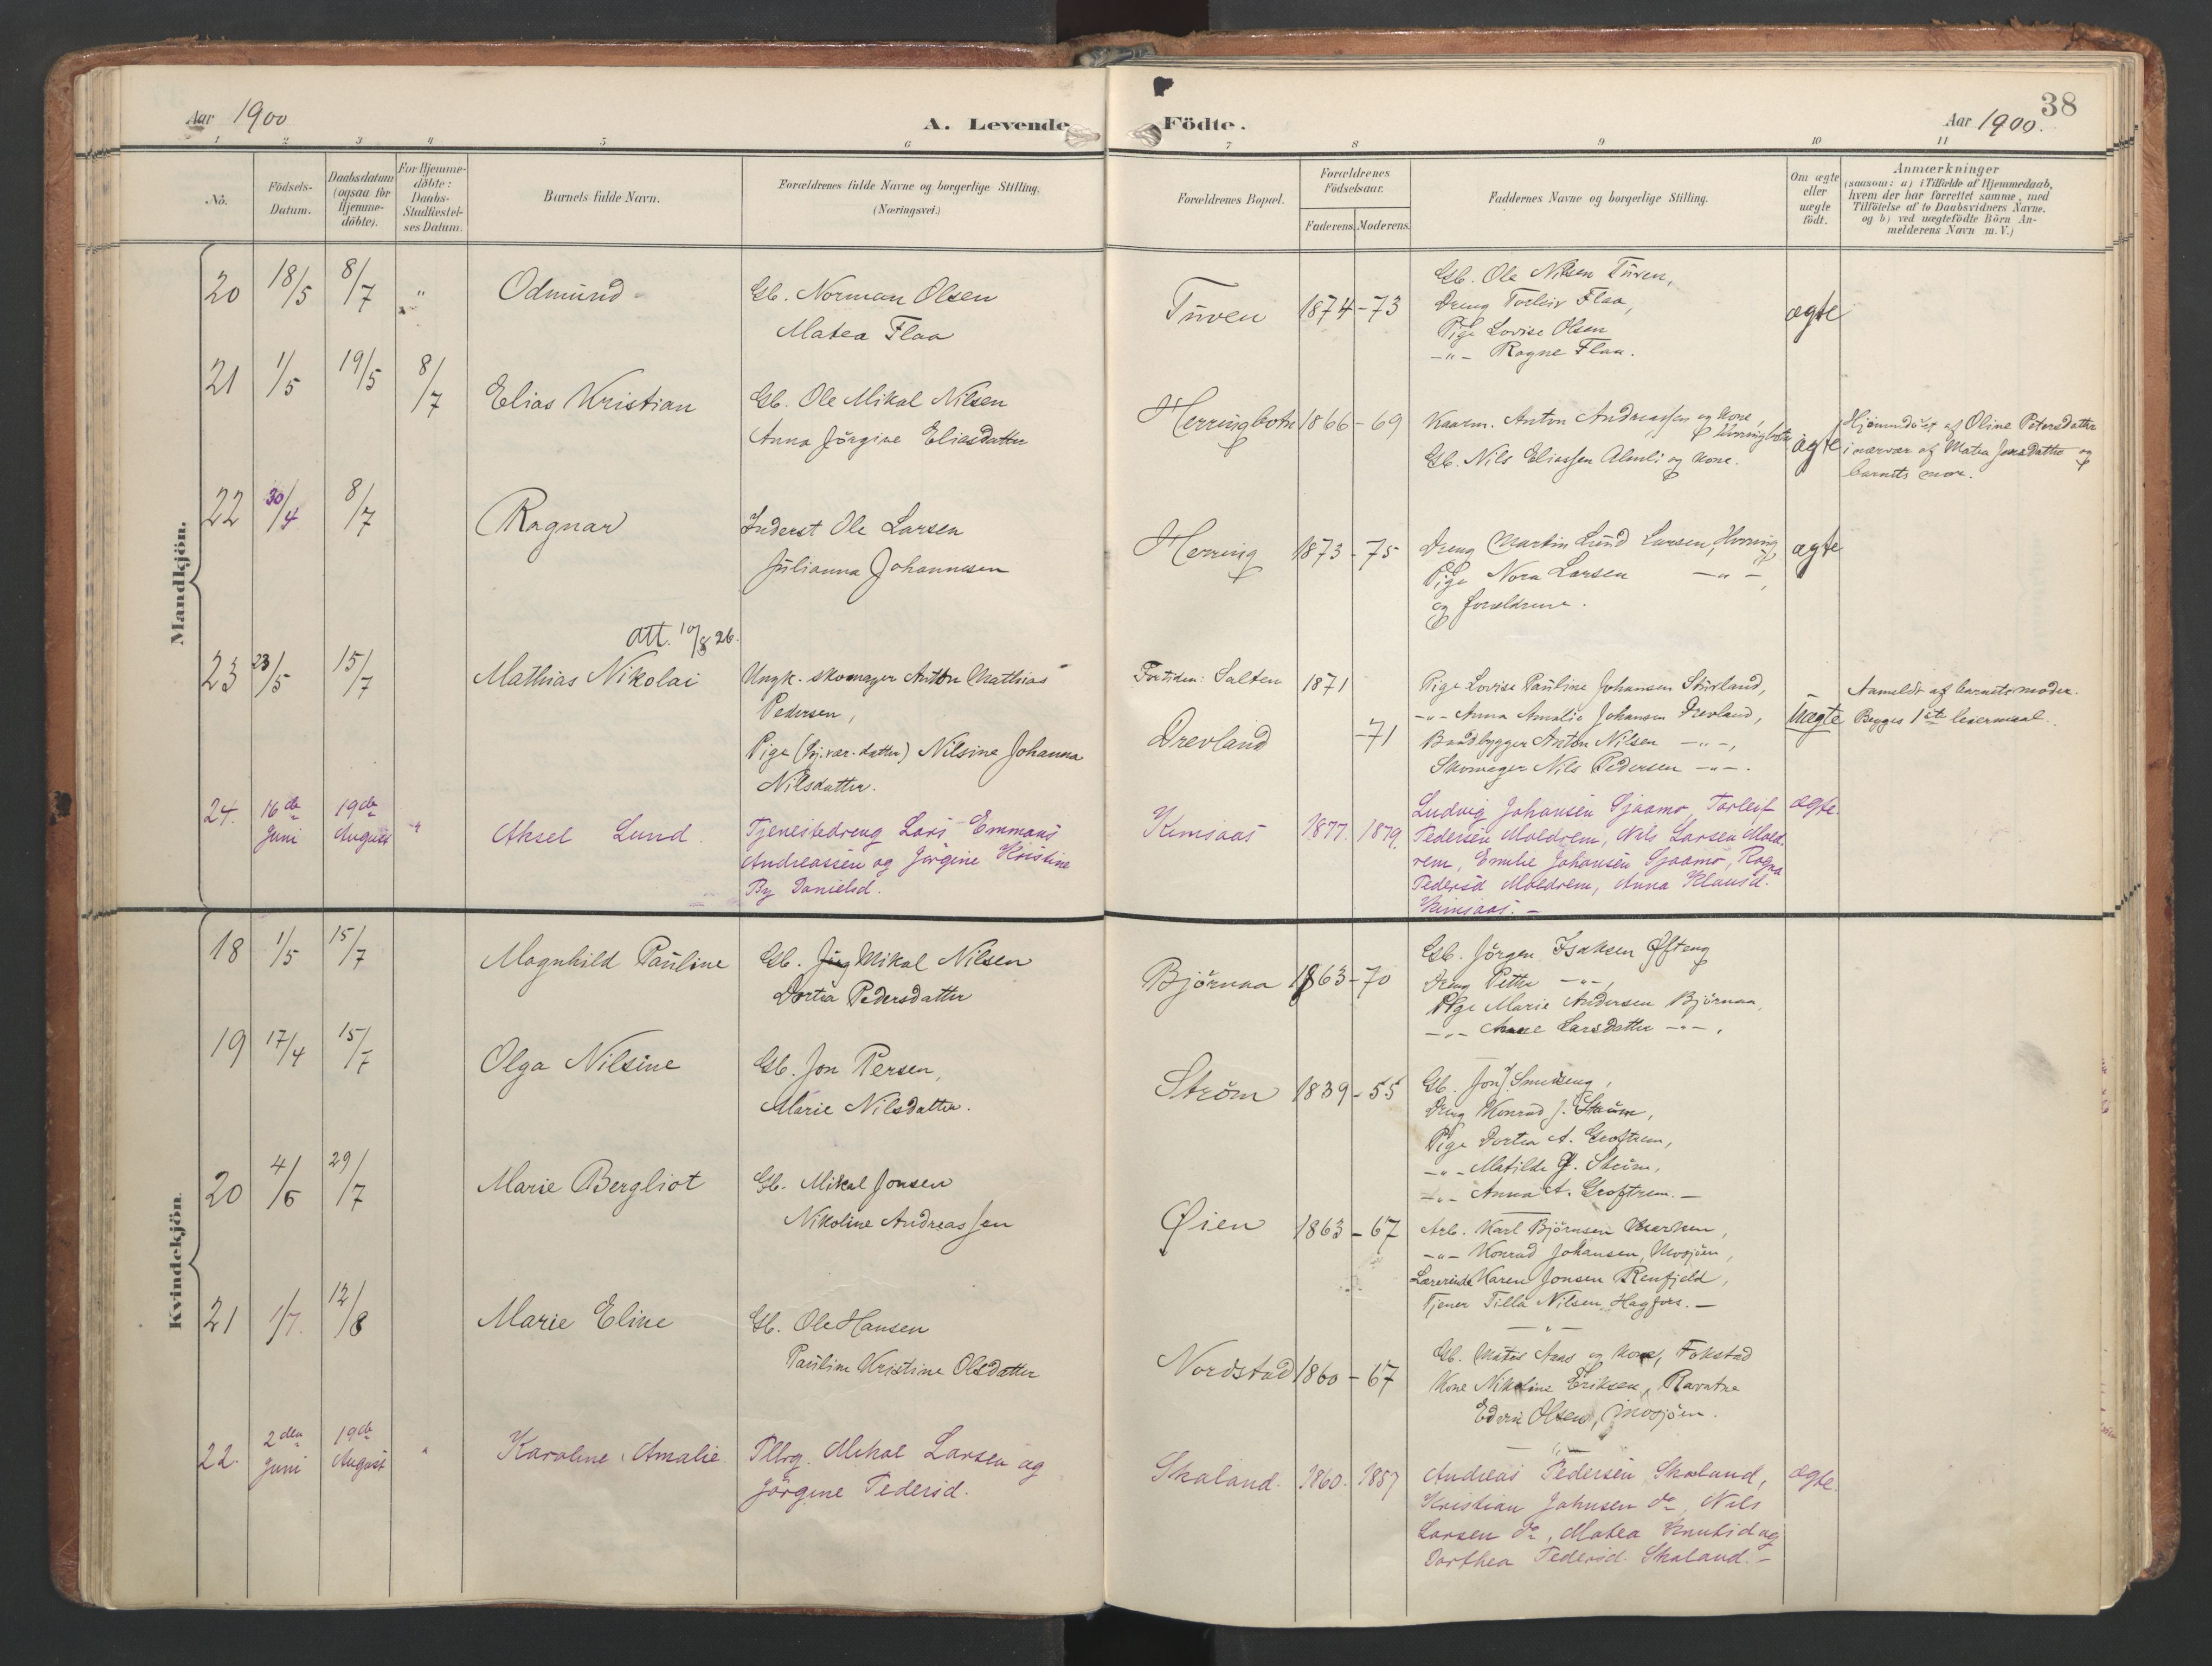 Aar 1900
A. Levende
Födte.
Aar 1900.
38
1 2 3 4 5 6 7 8 9 10 11
No.
Födsels-
Datum.
Daabsdatum
(ogsaa for
Hjemme-
döbte).
For Hjemme-
döbte:
Daabs-
Stadfæstel-
ses Datum.
Barnets fulde Navn.
Forældrenes fulde Navne og borgerlige Stilling.
(Næringsvei.)
Forældrenes Bopæl.
Forældrenes
Födselsaar.
Faderens. Moderens.
Faddernes Navne og borgerlige Stilling.
Om ægte
eller
uægte
födt.
Anmærkninger
(saasom: a) i Tilfælde af Hjemmedaab,
hvem der har forrettet samme, med
Tilföielse af to Daabsvidners Navne.
og b) ved uægtefödte Börn An-
melderens Navn m. V.)
Mandkjön.
20 18/5 8/7 " Odmund
Gb. Norman Olsen
Matea Flaa
Tuven 1874 - 73
Gb. Ole Nilsen Tuven,
Dreng Torleiv Flaa,
Pige Lovise Olsen
-"- Ragne Flaa.
ægte
21 1/5 19/5 8/7 Elias Kristian
Gb. Ole Mikal Nilsen
Anna Jörgine Eliasdatter
Herringbotn 1866 - 69
Kaarm. Anton Andreassen og kone,
Herringbotn
Gb. Nils Eliassen Almli og kone.
ægte
Hjemmedöbt af Oline Petersdatter
i nærvær af Matea Jensdatter og
barnets mor.
22 30/4 8/7 Ragnar
Inderst Ole Larsen
Julianna Johannesen
Herring 1873 - 75
Dreng Martin Lund Larsen, Herring,
Pige Nora Larsen -"-,
og forældrene.
ægte
att. 10/8 26.
23 23/5 15/7 Mathias Nikolai
Ungk. skomager Anton Mathias
Pedersen,
Pige (gj.vær. datter) Nilsine Johanna
Nilsdatter.
Fortiden: Salten 1871
Drevland -71
Pige Lovise Pauline Johansen Sturland,
-"- Anna Amalie Johansen Drevland,
Baadbygger Anton Nilsen -"-,
Skomager Nils Pedersen -"-.
uægte
Anmeldt af barnets moder.
Begges 1ste leiermaal.
24. 16de Juni 19de August " Aksel Lund.
Tjenestedreng Lars Emmaus
Andreassen og Jörgine Kristine
By Danielsd.
Kimsaas 1877. 1879.
Ludvig Johansen Sjaamo, Torleif
Pedersen Moldrem, Nils Larsen Mold-
rem, Emilie Johansen Sjaamo, Ragna
Pedersd Moldrem, Anna Klausd.
Kimsaas. -
ægte.
Kvindekjön.
18 1/5 15/7 Magnhild Pauline
Gb. Mikal Nilsen
Dortea Pedersdatter
Björnaa 1863 - 70
Gb. Jörgen Isaksen Øfteng
Dreng Petter -"-,
Pige Marie Andersen Björnaa,
-"- Anne Larsdatter -"-.
19 17/4 15/7 Olga Nilsine
Gb. Jon Persen,
Marie Nilsdatter.
Ström 1839 - 55
Gb. Jon J. Smedseng,
Dreng Konrad J. Ström,
Pige Dortea A. Groftrem,
-"- Matilde J. Ström,
-"- Anna A. Groftrem. -
20 4/6 29/7 Marie Bergliot
Gb. Mikal Jonsen
Nikoline Andreassen
Øien 1863 - 67
Arb. Karl Björnsen
-"- Konrad Johansen, Mosjöen,
Lærerinde Karen Jonsen Renfjeld,
Tjener Tilla Nilsen Hagfors. -
-"-
21 1/7. 12/8 Marie Eline
Gb. Ole Hansen
Pauline Kristine Olsdatter
Nordstad 1860 - 67
Gb. Matis Aras og kone, Fokstad
Kone Nikoline Eriksen, Ravatne
Edvin Olsen, Mosjöen.
-"-
22. 2den Juni 19de August " Karoline Amalie.
Mikal Larsen og
Jörgine Pedersd.
Skaland. 1860. 1857
Andreas Pedersen Skaland,
Kristian Johnsen do, Nils
Larsen do, Matea Knutsd og
Dorthea Pedersd. Skaland. -
ægte.